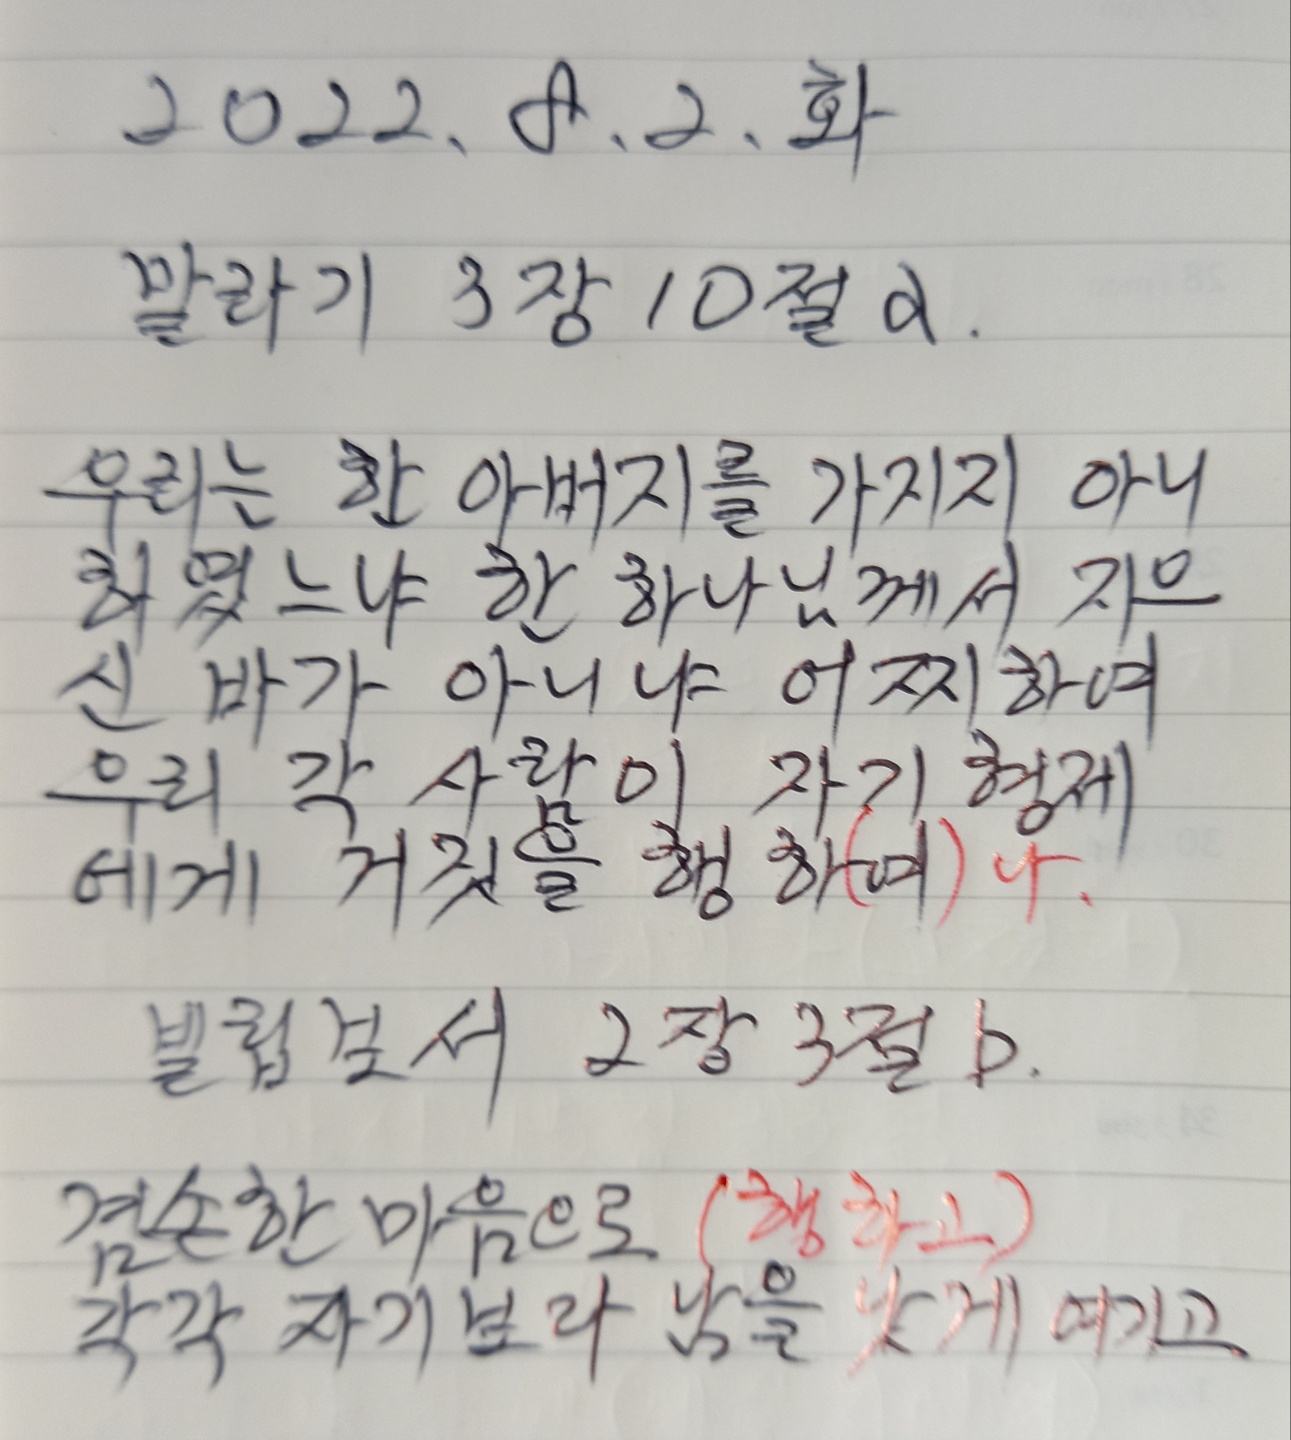 2022. 8. 2. 화
말라기 3장 10절 a.
우리는 한 아버지를 가지지 아니
하였느냐 한 하나님께서 지으
신 바가 아니냐 어찌하여
우리 각 사람이 자기 형제
에게 거짓을 행하(여)나.
빌립보서 2장 3절 b.
겸손한 마음으로 (행하고)
각각 자기보다 남을 낫게 여기고